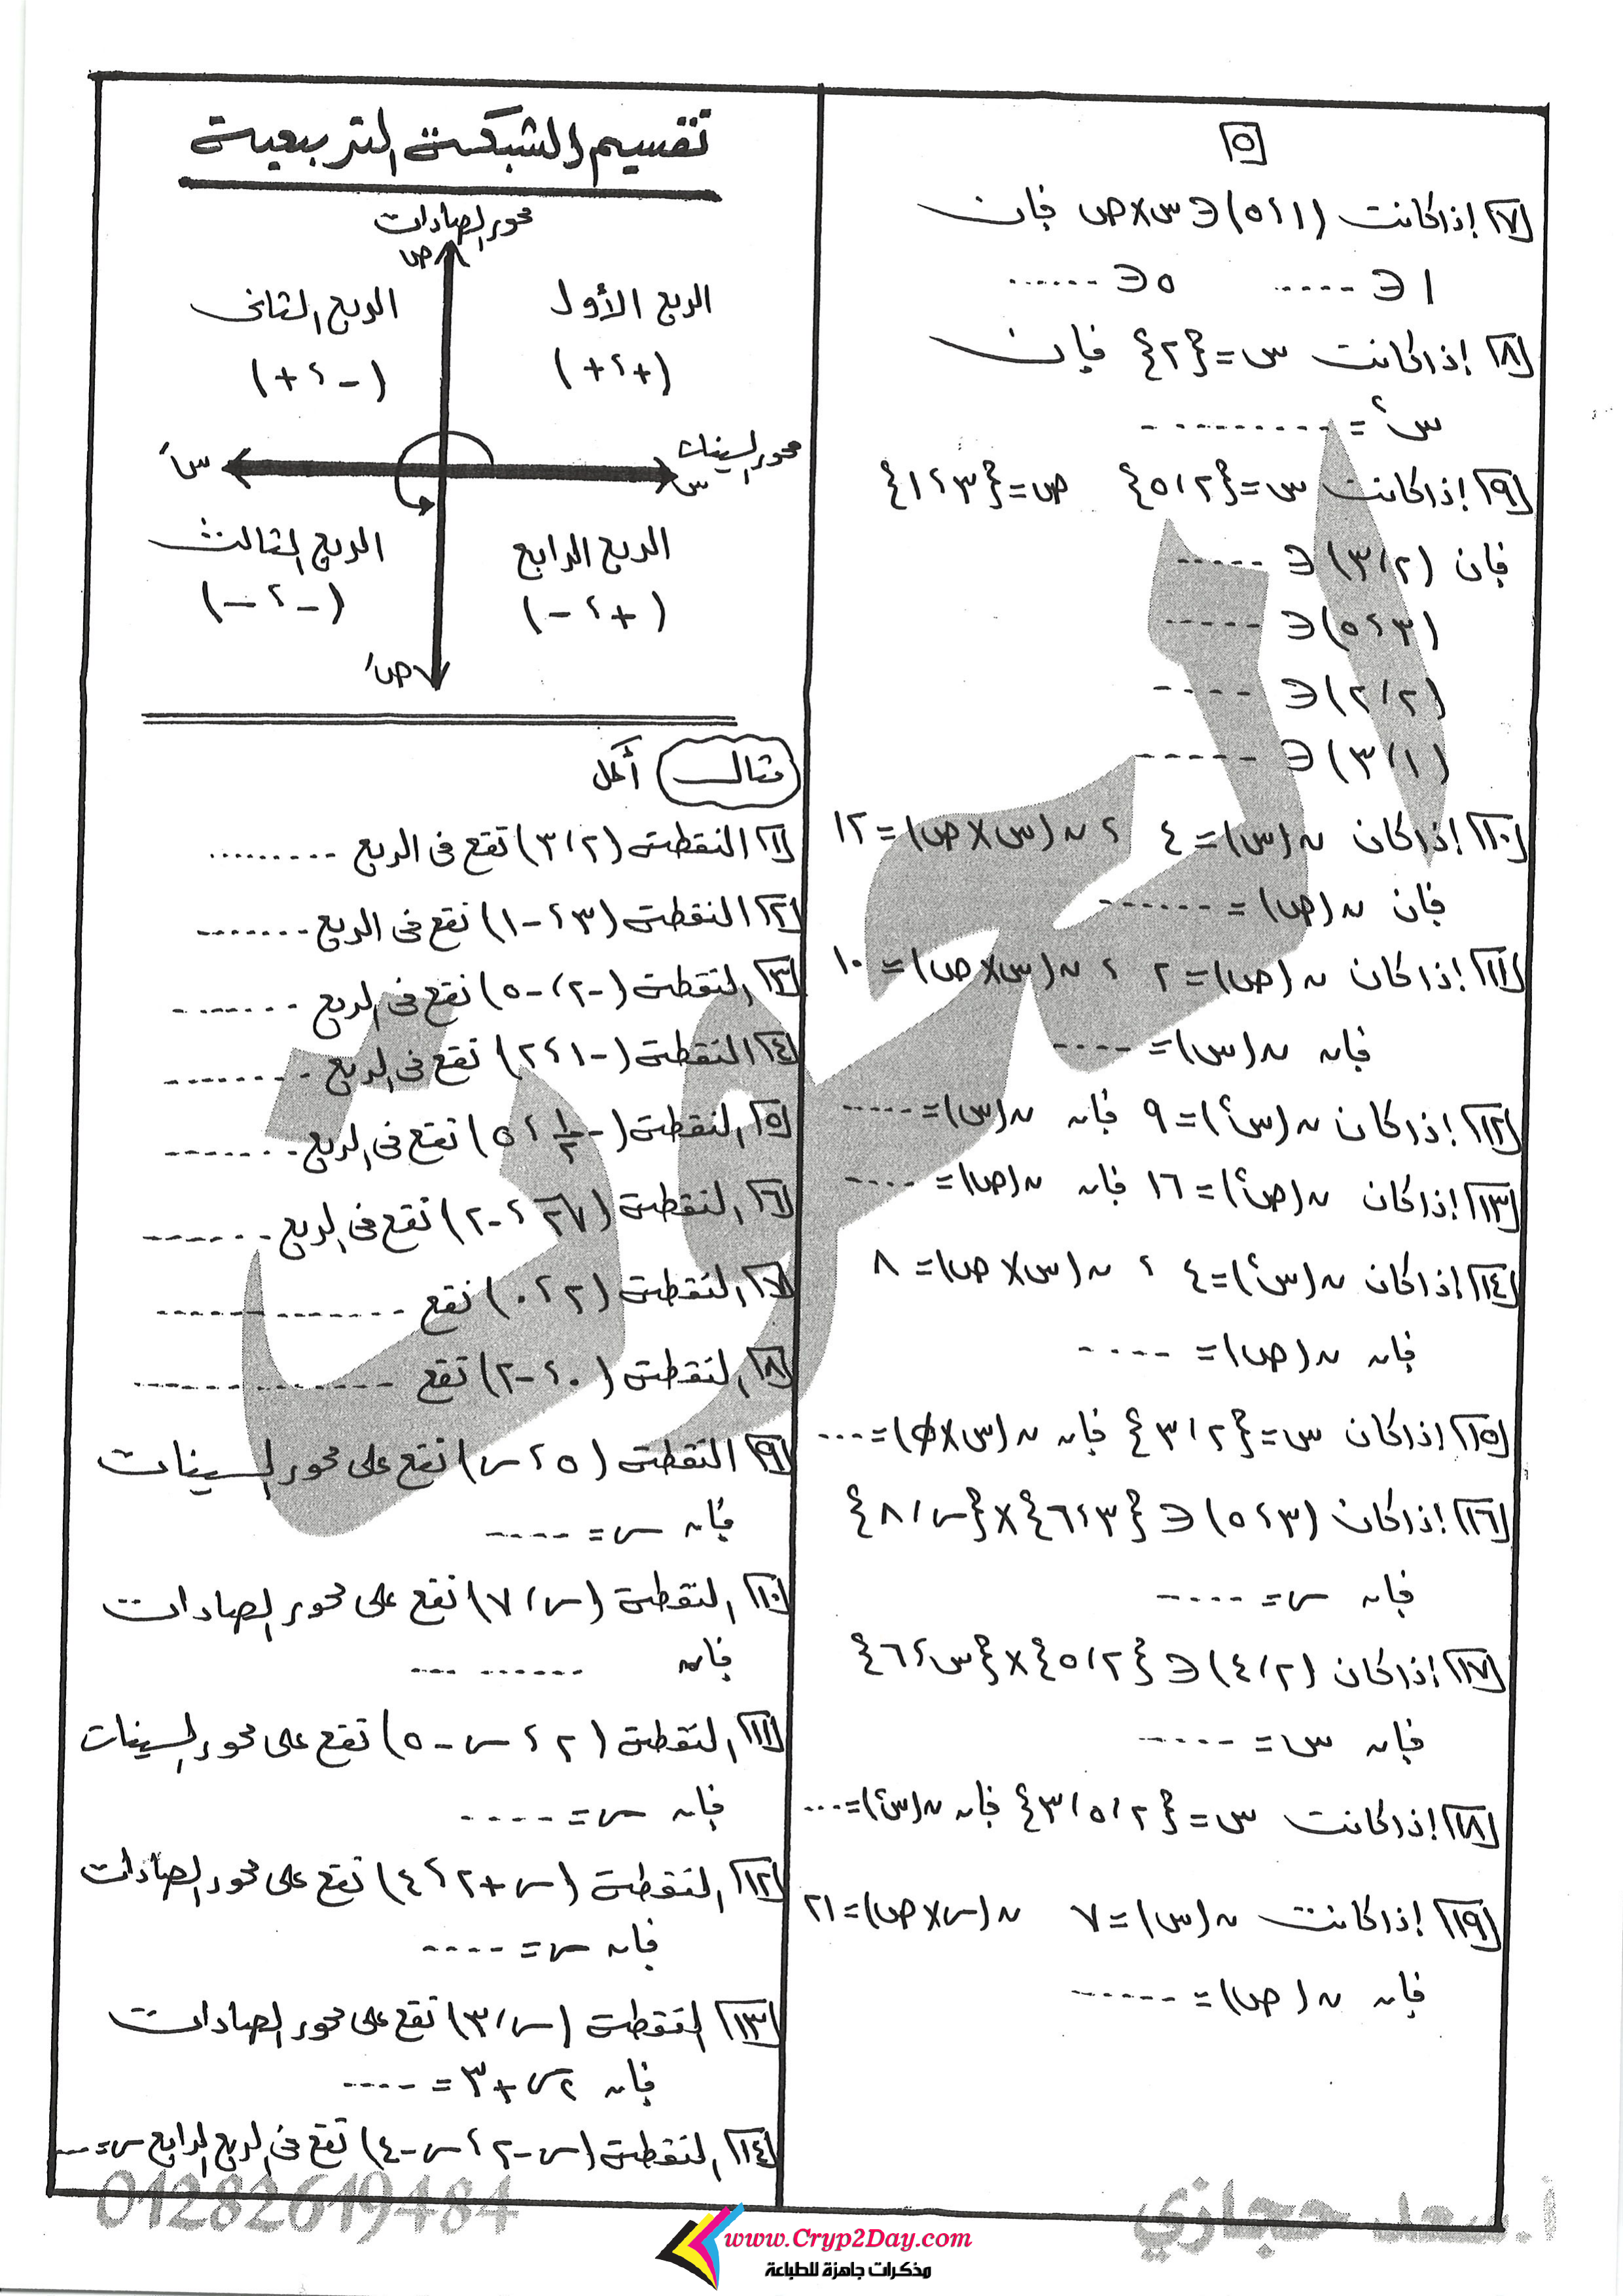 ٥
٧ إذا كانت (١ ، ٥) ∈ س × ص فإن
١ ∈ ..... ٥ ∈ ......
٨ إذا كانت س = {٢} فإن
س٢ = ..........
٩ إذا كانت س = {٢ ، ٥} ص = {٣ ، ١}
فإن (٢ ، ٣) ∈ .....
(٣ ، ٥) ∈ .....
(٢ ، ٢) ∈ ....
(١ ، ٣) ∈ ......
١٠ إذا كان ن(س) = ٤ ، ن(س × ص) = ١٢
فإن ن(ص) = ......
١١ إذا كان ن(ص) = ٢ ، ن(س × ص) = ١٠
فإن ن(س) = ....
١٢ إذا كان ن(س٢) = ٩ فإن ن(س) = .....
١٣ إذا كان ن(ص٢) = ١٦ فإن ن(ص) = ....
١٤ إذا كان ن(س٢) = ٤ ، ن(س × ص) = ٨
فإن ن(ص) = ....
١٥ إذا كان س = {٢ ، ٣} فإن ن(س × φ) = ...
١٦ إذا كان (٣ ، ٥) ∈ {٣ ، ٦} × {س ، ٨}
فإن س = ....
١٧ إذا كان (٢ ، ٤) ∈ {٢ ، ٥} × {س ، ٦}
فإن س = .....
١٨ إذا كانت س = {٢ ، ٥ ، ٣} فإن ن(س٢) = ...
١٩ إذا كانت ن(س) = ٧ ن(س × ص) = ٢١
فإن ن(ص) = ......
تقسيم الشبكة التربيعية
محور الصادات
ص
الربع الأول
الربع الثاني
(+ ، +)
(- ، +)
محور السينات
س
سَ
الربع الرابع
الربع الثالث
(+ ، -)
(- ، -)
صَ
مثال أكمل
١ النقطة (٢ ، ٣) تقع فى الربع .........
٢ النقطة (٣ ، -١) تقع فى الربع .......
٣ النقطة (-٢ ، -٥) تقع فى الربع ........
٤ النقطة (-١ ، ٢) تقع فى الربع ........
٥ النقطة (-١/٢ ، ٥) تقع فى الربع .......
٦ النقطة (√٢ ، -٢) تقع فى الربع .......
٧ النقطة (٢ ، ٠) تقع ............
٨ النقطة (٠ ، -٢) تقع ............
٩ النقطة (٥ ، س) تقع على محور السينات
فإن س = ....
١٠ النقطة (س ، ٧) تقع على محور الصادات
فإن .........
١١ النقطة (٢ ، س - ٥) تقع على محور السينات
فإن س = ....
١٢ النقطة (س + ٢ ، ٤) تقع على محور الصادات
فإن س = ....
١٣ النقطة (س ، ٣) تقع على محور الصادات
فإن ٢س + ٣ = ....
١٤ النقطة (س - ٢ ، س - ٤) تقع فى الربع الرابع س = ...
01282619484
أ.سعد حجازي
www.Cryp2Day.com
مذكرات جاهزة للطباعة